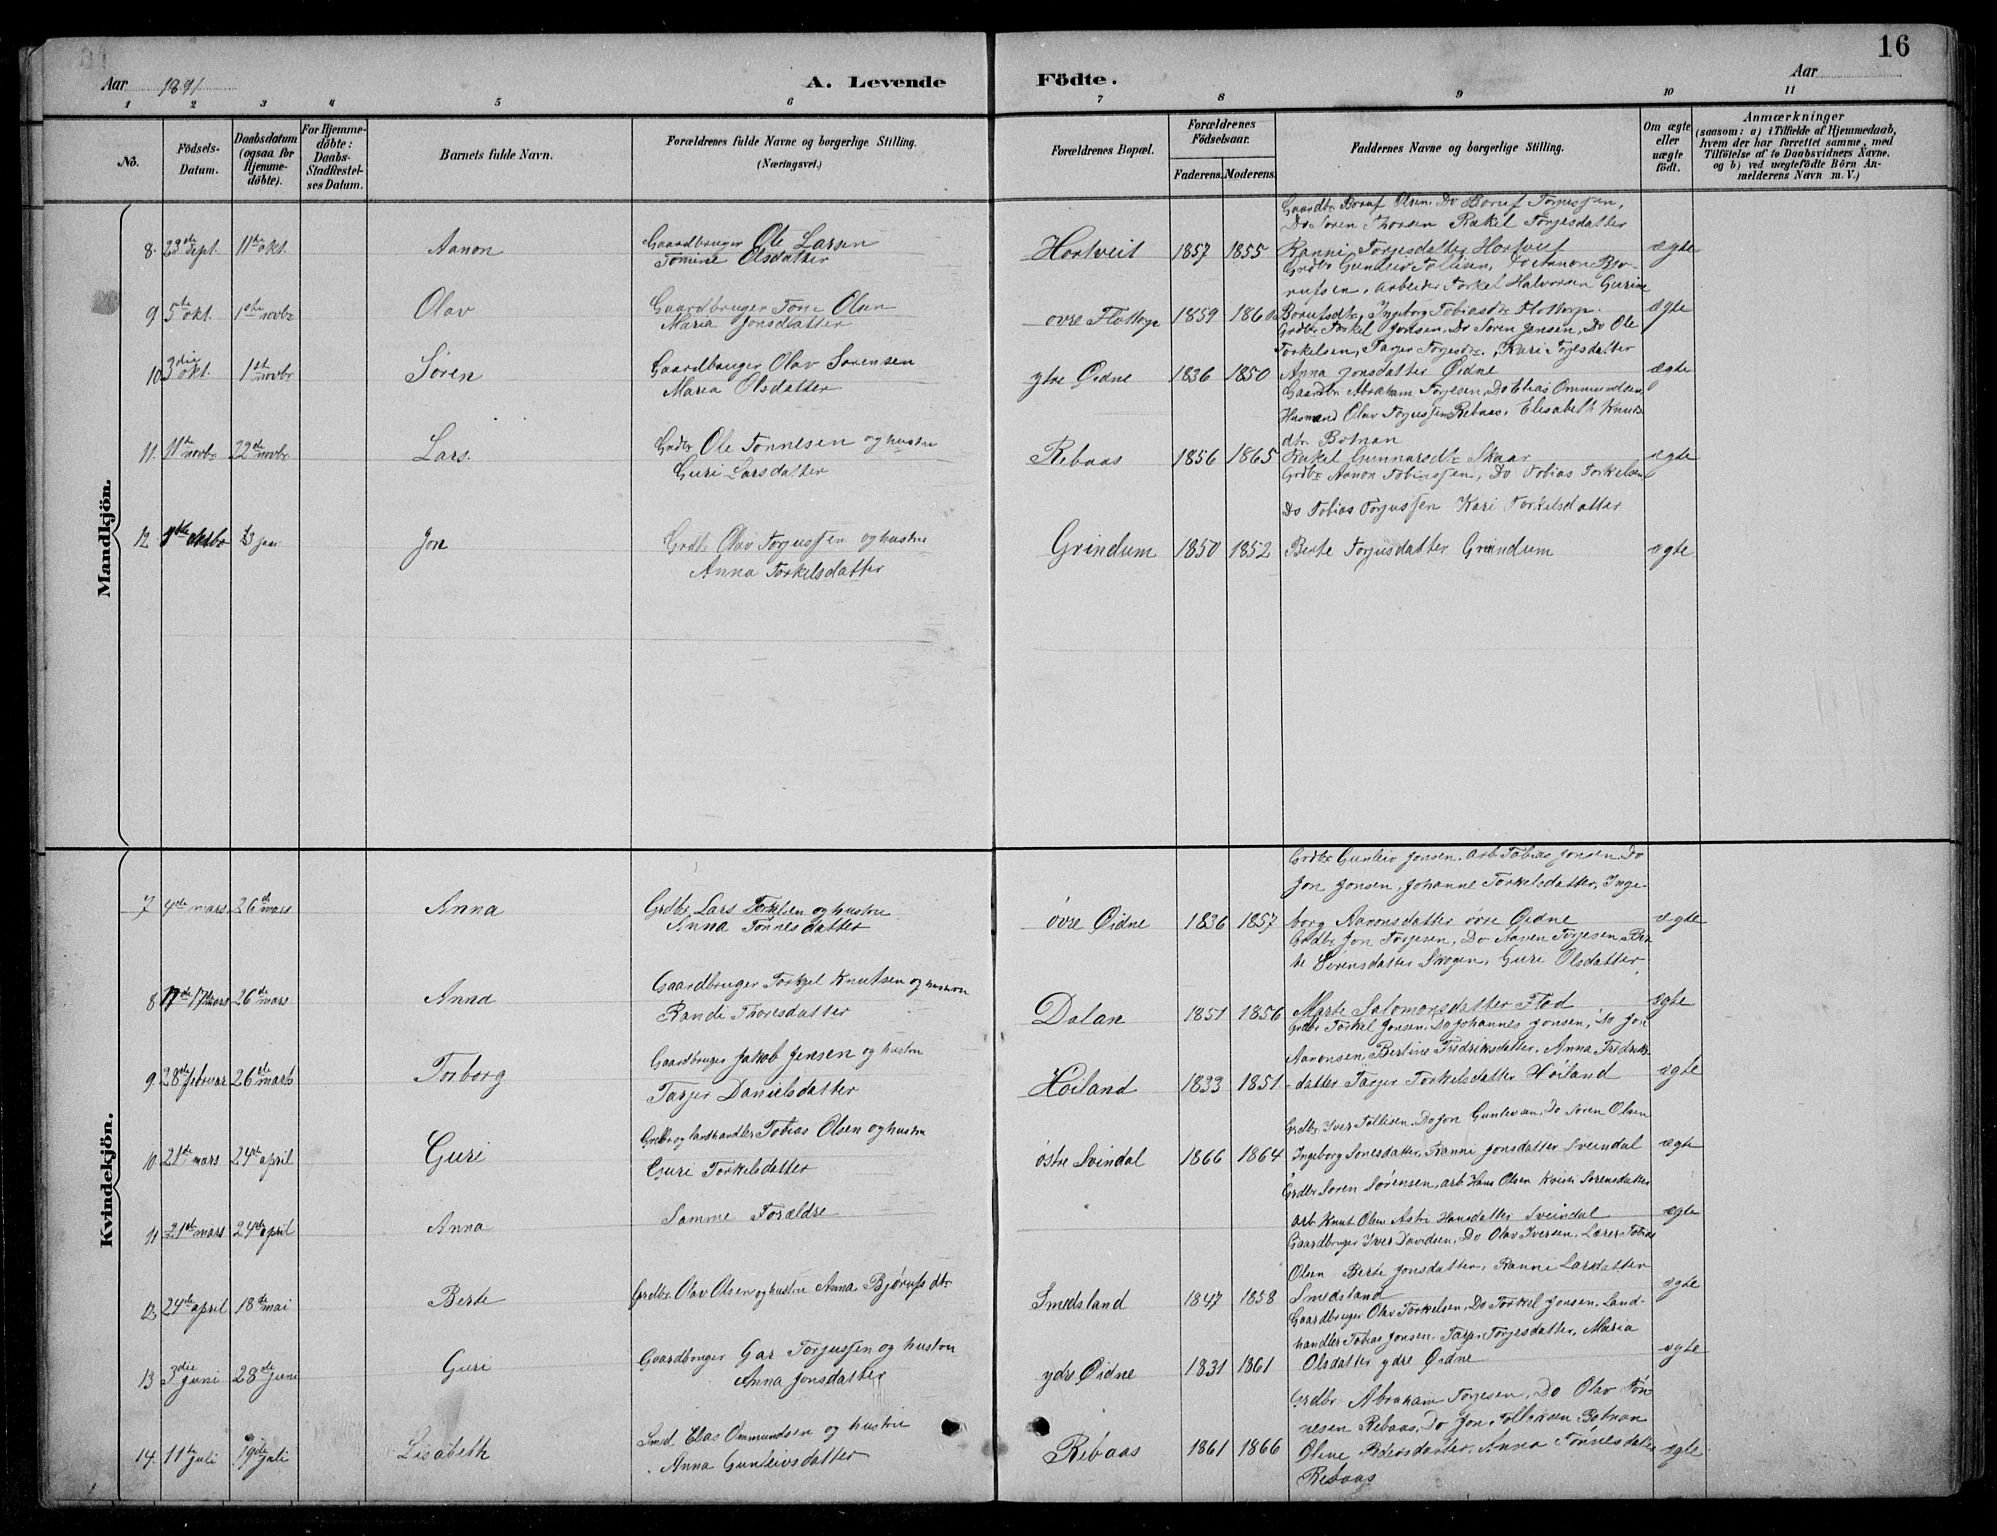 16
Aar 1891
A. Levende
Födte.
Aar
1 2 3 4 5 6 7 8 9 10 11
No.
Födsels-
Datum.
Daabsdatum
(ogsaa for
Hjemme-
döbte).
For Hjemme-
döbte:
Daabs-
Stadfæstel-
ses Datum.
Barnets fulde Navn.
Forældrenes fulde Navne og borgerlige Stilling.
(Næringsvei.)
Forældrenes Bopæl.
Forældrenes
Födselsaar.
Faderens. Moderens.
Faddernes Navne og borgerlige Stilling.
Om ægte
eller
uægte
födt.
Anmærkninger
(saasom: a) i Tilfælde af Hjemmedaab,
hvem der har forrettet samme, med
Tilföielse af to Daabsvidners Navne,
og b) ved uægtefödte Börn An-
melderens Navn m. V.)
Mandkjön.
8. 23de sept. 11te okt. Aanon
Gaardbruger Ole Larsen
Tomine Olsdatter
Hortveit 1857 1855
Gaardbr Boruf Olsen Do Boruf Tørressen,
Do Søren Thorsen Rakel Torjesdatter
Ranni Torjesdatter Hortveit
ægte
9 5te okt. 1ste novbr Olav
Gaardbruger Tore Olsen
Maria Jonsdatter
øvre Flottorp 1859
Grdbr Gunleiv Tollisen, Do Aanon Bjo-
rufsen, arbeider Torkel Halvorsen Gurine
Borufsdtr, Ingeborg Tobiasdtr Flottorp.
ægte
10 3die okt. 1ste novbr Søren
Gaardbruger Olav Sørensen
Maria Olsdatter
ytre Øidne 1836 1850
Grdbr Torkel Jonsen, Do Søren Jensen, Do Ole
Torkelsen, Tarjer Torjesdtr, Kari Torjesdatter
Anna Jonsdatter Øidne
ægte
11. 11te novbr 22de novbr Lars.
Grdbr Ole Tønnesen og hustru
Guri Larsdatter
Rebaas 1856 1865
Gaardbr Abraham Torjesen, Do Elias Ommundsen
Husmand Olav Torjussen Rebaas, Elisabeth Knuds
dtr Botnan
Rakel Gunnarsdtr Skaar
ægte
12 oktbr 3 jan Jon
Grdbr Olav Torjussen og hustru
Anna Torkelsdatter
Grindum 1850 1852
Grdbr Aanon Tobiassen, Do Tobias Torkelsen
Do Tobias Torjussen Kari Torkelsdatter
Berte Torjusdatter Grindum
ægte
Kvindekjön.
7 4de mars 26de mars Anna
Grdbr Lars Torkelsen og hustru
Anna Tønnesdatter
øvre Øidne 1836 1857
Grdbr Gunleiv Jonsen, arb Tobias Jonsen Do
Jon Jonsen, Johanne Torkelsdatter, Inge-
borg Aanonsdatter øvre Øidne
ægte
8 17de mars 26de mars Anna
Gaardbruger Torkel Knutsen og hustru
Randi Thoresdatter
Dalan 1851 1856
Grdbr Jon Torjesen, Do Aanen Torjesen Ber
te Sørensdatter Skogen, Guri Olsdatter
Marte Salomonsdatter Flod
ægte
9 28de februar 26de mars Torborg
Gaardbruger Jakob Jensen og hustru
Tarjer Danielsdatter
Høiland 1833 1851
Grdbr Torkel Jonsen, Do Johannes Jonsen, Do Jon
Aanonsen, Bertine Fredriksdatter, Anna Fredriks-
datter Tarjer Torkelsdatter Høiland
ægte
10 21de mars 24de april Guri
Grdbr og landhandler Tobias Olsen og hustru
Guri Torkelsdatter
østre Svindal 1866 1864
Grdbr Iver Tollisen, Do Jon Gunlevsen, Do Søren Olsen
Ingeborg Sonesdatter, Ranni Jonsdatter Sveindal
ægte
11 21de mars 24de april Anna
Samme Forældre
Grdbr Søren Sørensen, arb Hans Olsen Kristi Sørensdatter
arb Knut Olsen Astri Hansdatter Sveindal
ægte
12. 24de april 18de mai Berte
Grdbr Olav Olsen og hustru Anna Bjørufs dtr
Smedsland 1847 1858
Gaardbruger Iver Davidsen, Do Olav Iversen, Lærer Tobias
Olsen Berte Jonsdatter, Ranni Larsdatter
Smedsland
ægte
13 3die juni 28de juni Guri
Gaardbruger Gar Torjussen og hustru
Anna Jonsdatter
ydre Øidne 1831 1861
Gaardbruger Olav Torkelsen, Do Torkel Jonsen, Land-
handler Tobias Jonsen, Tarjer Torjesdatter, Maria
Olsdatter ydre Øidne
ægte
14. 11te juli 19de juli Lisabeth
Smed Elias Ommundsen og hustru
Anna Gunleivsdatter
Rebaas 1861 1866
Grdbr Abraham Torjesen, Do Olav Tøn-
nesen Rebaas, Do Jon Tollisen Botnan
Oline Pedersdatter, Anna Tønnesdatter
Rebaas
ægte